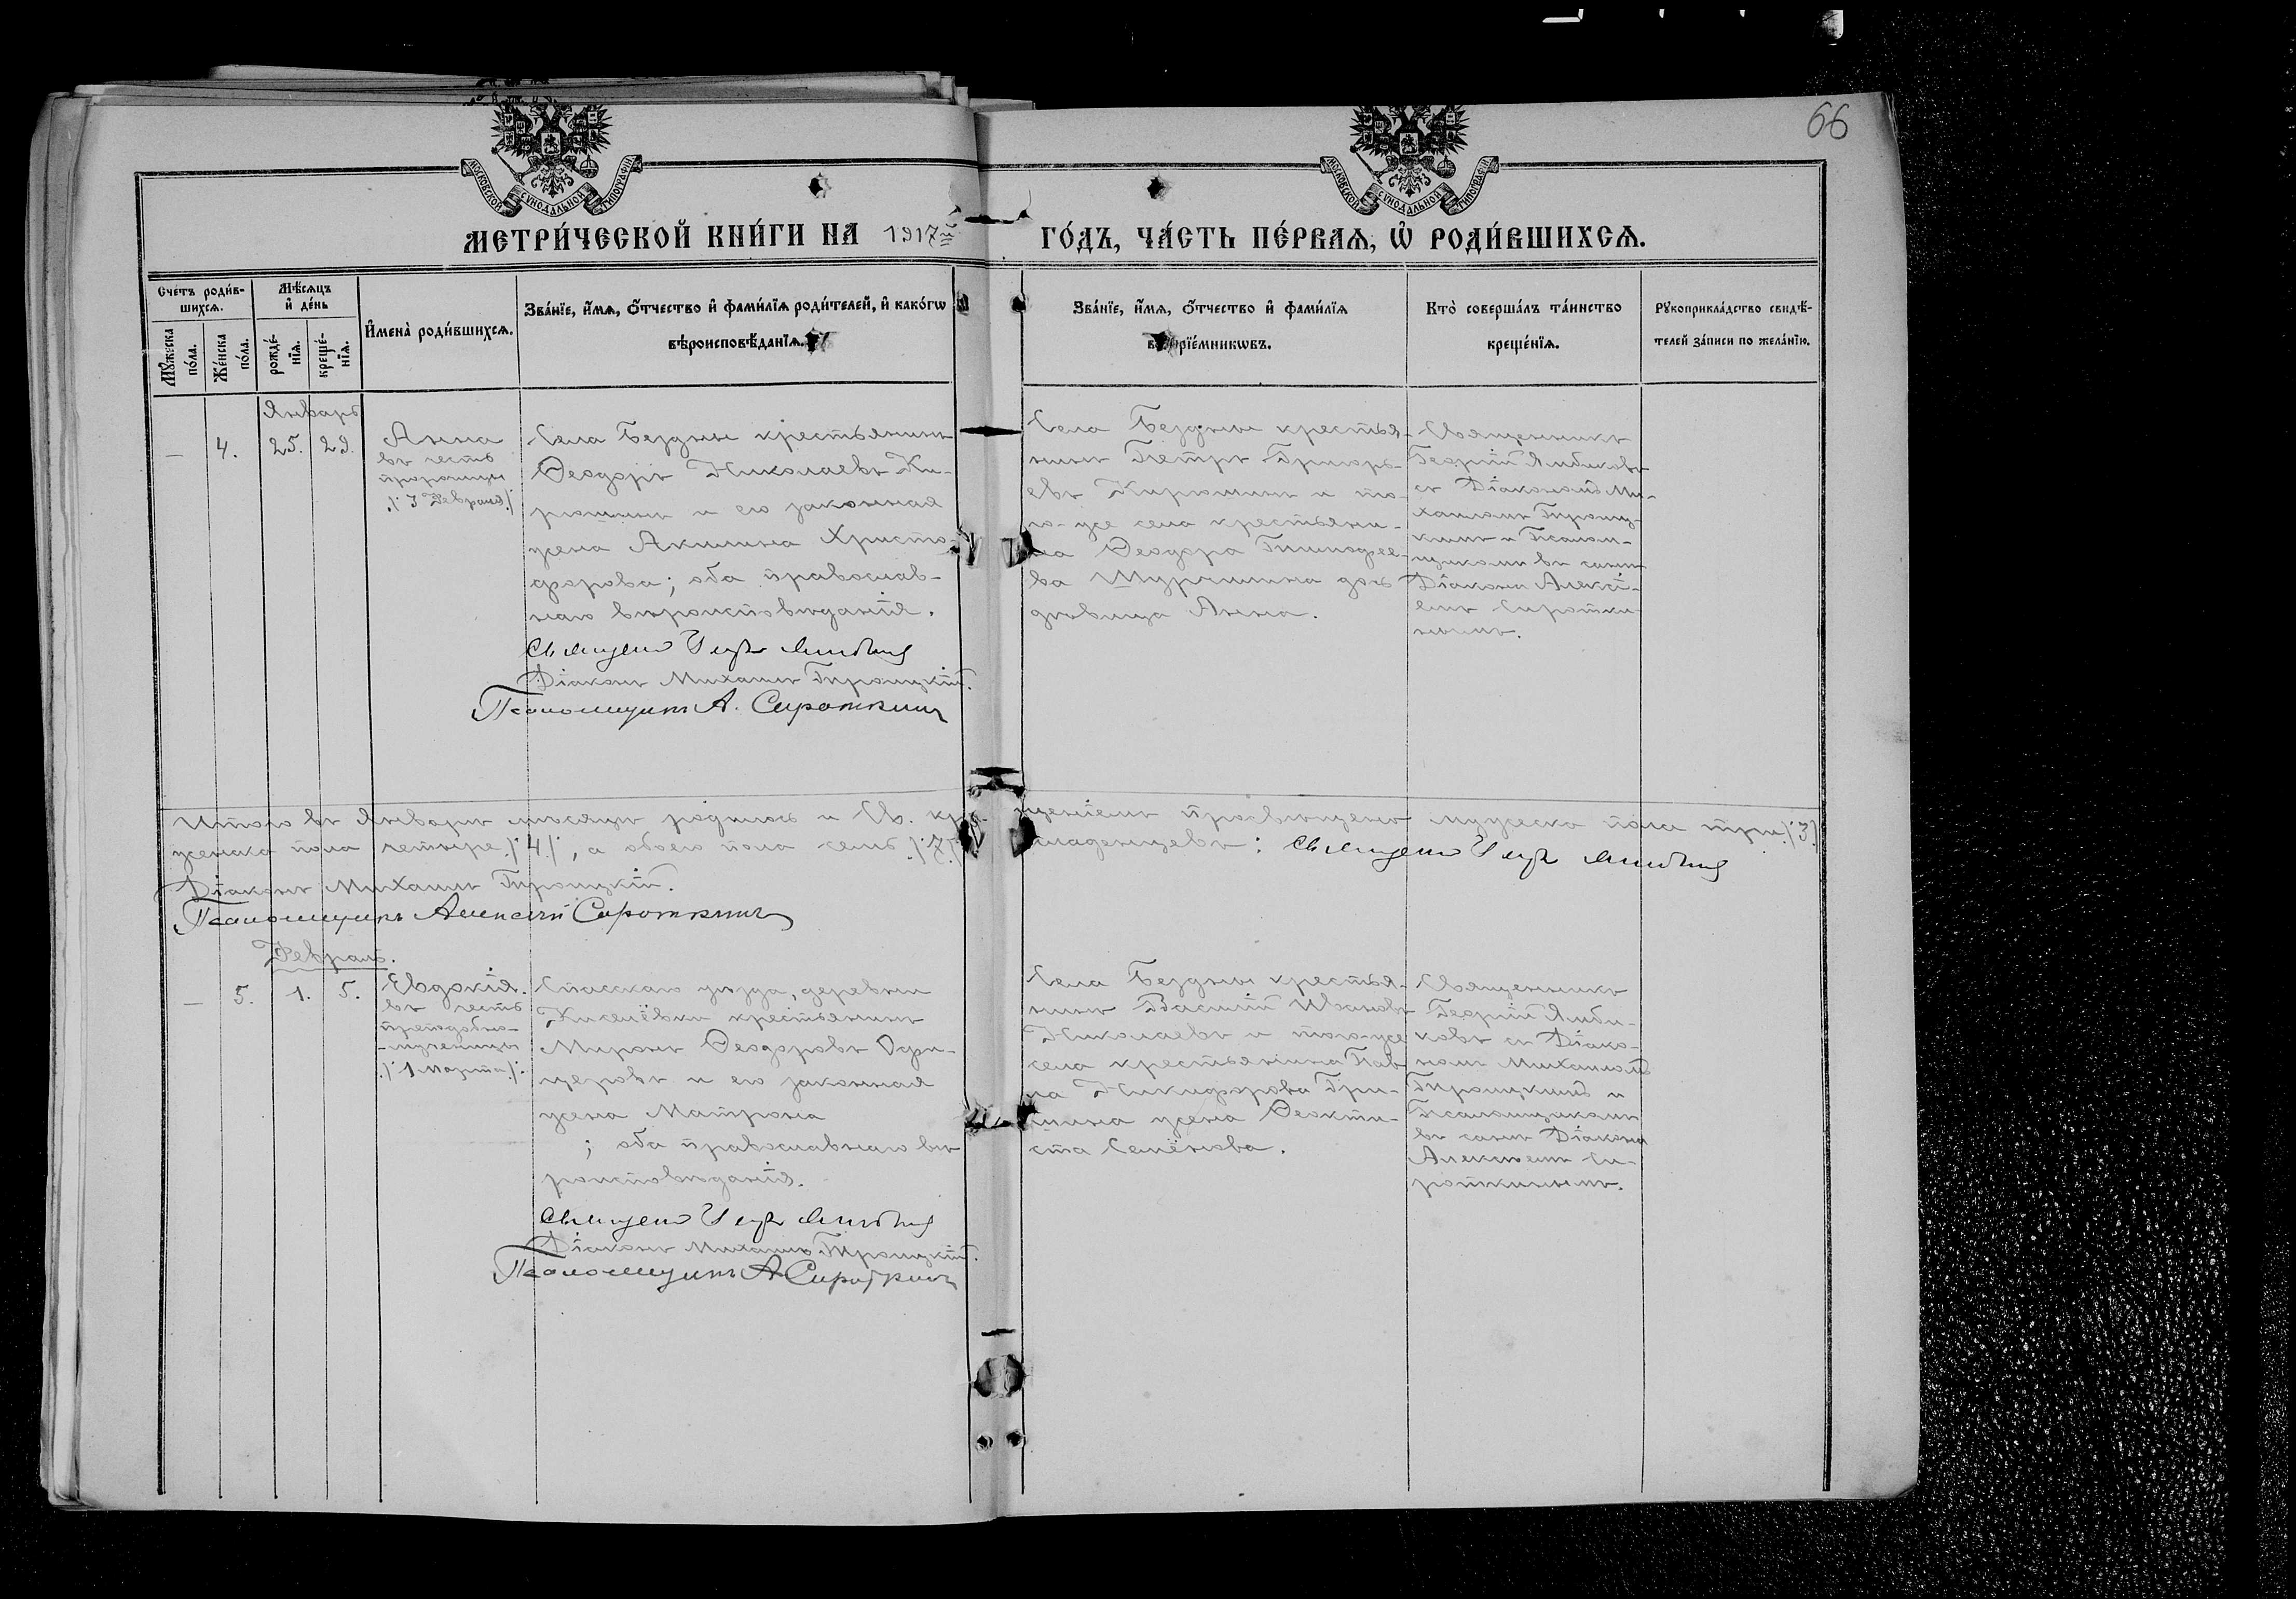 66
МОСКОВСКОЙ СѴНОДАЛЬНОЙ ТИПОГРАФІИ
МОСКОВСКОЙ СѴНОДАЛЬНОЙ ТИПОГРАФІИ
МЕТРИ́ЧЕСКОЙ КНИ́ГИ НА 1917й ГО́ДЪ, ЧА́СТЬ ПЕ́РВАЯ, Ѡ҆ РОДИ́ВШИХСЯ.
Сче́тъ роди́в-
шихся.
Мѣ́сяцъ
и҆ де́нь
Мꙋ́жеска
по́ла.
Же́нска
по́ла.
рожде́-
нїя.
креще́-
нїя.
И҆мена̀ роди́вшихся.
Зва́нїе, и҆́мя, ѻ҆́тчество и҆ фами́лїя роди́телей, и҆ како́гѡ
вѣроисповѣ́данїя.
Зва́нїе, и҆́мя, ѻ҆́тчество и҆ фами́лїя
воспрїе́мникѡвъ.
Кто̀ соверша́лъ та́инство
креще́нїя.
Рꙋкоприкла́дство свидѣ́-
телей за́писи по жела́нїю.
Январь
— 4. 25. 29.
Анна
въ честь
пророчицы
/:3 Февраля:/
Села Бездны крестьянинъ
Ѳеодоръ Николаевъ Ки-
рюшинъ и его законная
жена Акилина Христо-
форова; оба православ-
наго вѣроисповѣданія.
Діаконъ Михаилъ Троицкій.
Псаломщикъ А. Сироткинъ
Села Бездны крестья-
нинъ Петръ Григорь-
евъ Кирюшинъ и то-
го-же села крестьяни-
на Ѳеодора Тимоѳее-
ва Шурчилина дочь
дѣвица Анна.
Священникъ
Георгій Ямбиковъ
съ Діакономъ Ми-
хаиломъ Троиц-
кимъ и Псалом-
щикомъ въ санѣ
Діакона Алексі-
емъ Сиротки-
нымъ.
Итого въ Январѣ мѣсяцѣ родилось и Св. кре-щеніемъ просвѣщено мужеска пола три /:3:/
женска пола четыре /:4:/, а обоего пола семь /:7:/ младенцевъ:
Діаконъ Михаилъ Троицкій.
Псаломщикъ Алексѣй Сироткинъ
Февраль.
— 5. 1. 5.
Евдокія.
въ честь
преподобно-
-мученицы
/:1 Марта:/.
Спасскаго уѣзда, деревни
Киселёвки крестьянинъ
Миронъ Ѳеодоровъ Офи-
церовъ и его законная
жена Матрона
; оба православнаго вѣ-
роисповѣданія.
Діаконъ Михаилъ Троицкій.
Псаломщикъ А Сироткинъ
Села Бездны крестья-
нинъ Василій Ивановъ
Николаевъ и того-же
села крестьянина Пав-
ла Никифорова Гри-
шина жена Ѳеокти-
ста Семёнова.
Священникъ
Георгій Ямби-
ковъ съ Діако-
номъ Михаиломъ
Троицкимъ и
Псаломщикомъ
въ санѣ Діакона
Алексѣемъ Си-
роткинымъ.